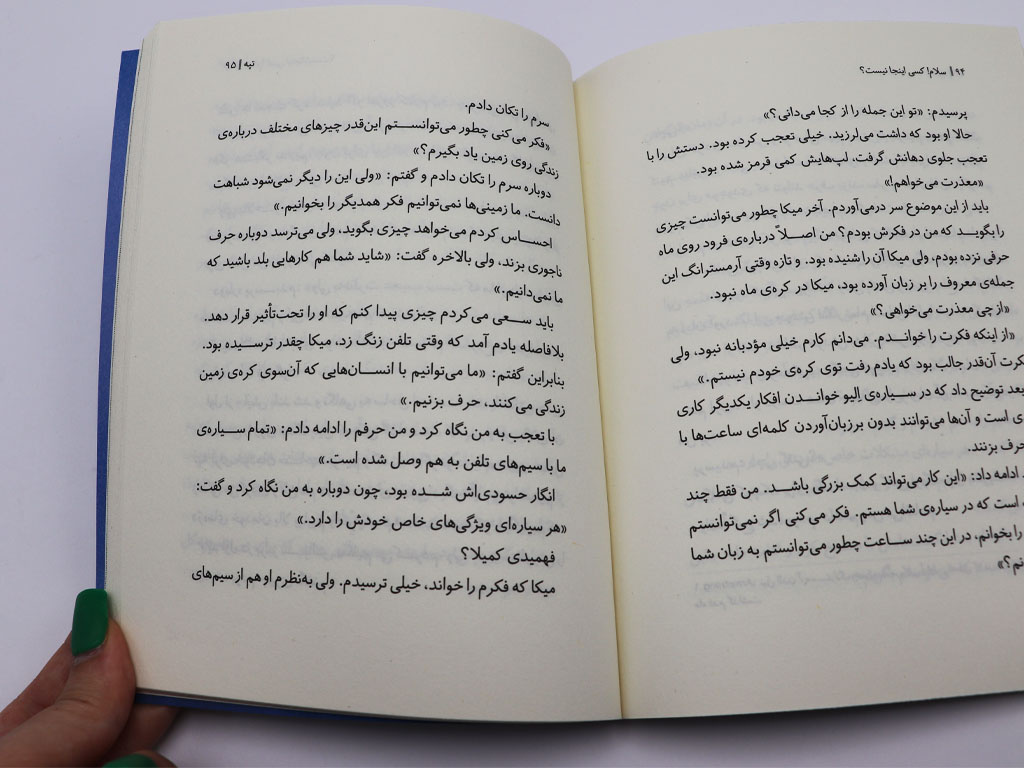 ۹۴ | سلام! کسی اینجا نیست؟
پرسیدم: «تو این جمله را از کجا می‌دانی؟»
حالا او بود که داشت می‌لرزید. خیلی تعجب کرده بود. دستش را با
تعجب جلوی دهانش گرفت، لب‌هایش کمی قرمز شده بود.
«معذرت می‌خواهم!»
باید از این موضوع سر درمی‌آوردم. آخر میکا چطور می‌توانست چیزی
را بگویـد که من در فکرش بودم؟ من اصلاً درباره‌ی فرود روی ماه
حرفی نزده بودم، ولی میکا آن را شنیده بود. و تازه وقتی آرمسترانگ این
جمله‌ی معروف را بر زبان آورده بود، میکا در کره‌ی ماه نبود.
«از چی معذرت می‌خواهی؟»
«از اینکه فکرت را خوانـدم. می‌دانم کارم خیلی مؤدبانه نبود، ولی
آن‌قدر جالب بود که یادم رفت توی کره‌ی خودم نیستم.»
توضیح داد که در سیاره‌ی اِلیو خوانـدن افکار یکدیگر کاری
است و آن‌ها می‌توانند بدون برزبان‌آوردن کلمه‌ای ساعت‌ها با
حرف بزنند.
ادامه داد: «این کار می‌تواند کمک بزرگی باشـد. من فقط چند
است که در سیاره‌ی شما هستم. فکر می‌کنی اگر نمی‌توانستم
را بخوانم، در این چند سـاعت چطور می‌توانستم به زبان شما
تپه | ۹۵
سرم را تکان دادم.
«فکر می‌کنی چطور می‌توانسـتم این‌قدر چیزهای مختلف درباره‌ی
زندگی روی زمین یاد بگیرم؟»
دوباره سرم را تکان دادم و گفتم: «ولی این را دیگر نمی‌شود شباهت
دانست. ما زمینی‌ها نمی‌توانیم فکر همدیگر را بخوانیم.»
احسـاس کردم می‌خواهد چیزی بگوید، ولی می‌ترسد دوباره حرف
ناجوری بزند، ولی بالاخره گفت: «شاید شما هم کارهایی بلد باشید که
ما نمی‌دانیم.»
باید سـعی می‌کردم چیزی پیدا کنم که او را تحت‌تأثیر قرار دهد.
بلافاصله یادم آمد که وقتی تلفن زنگ زد، میکا چقدر ترسیده بود.
بنابراین گفتم: «ما می‌توانیم با انسـان‌هایی که آن‌سوی کره‌ی زمین
زندگی می‌کنند، حرف بزنیم.»
با تعجب به من نگاه کرد و من حرفم را ادامه دادم: «تمام سیاره‌ی
ما با سیم‌های تلفن به هم وصل شده است.»
انگار حسودی‌اش شـده بود، چون دوباره به من نگاه کرد و گفت:
«هر سیاره‌ای ویژگی‌های خاص خودش را دارد.»
فهمیدی کمیلا؟
میکا که فکرم را خواند، خیلی ترسیدم. ولی به‌نظرم او هم از سیم‌های